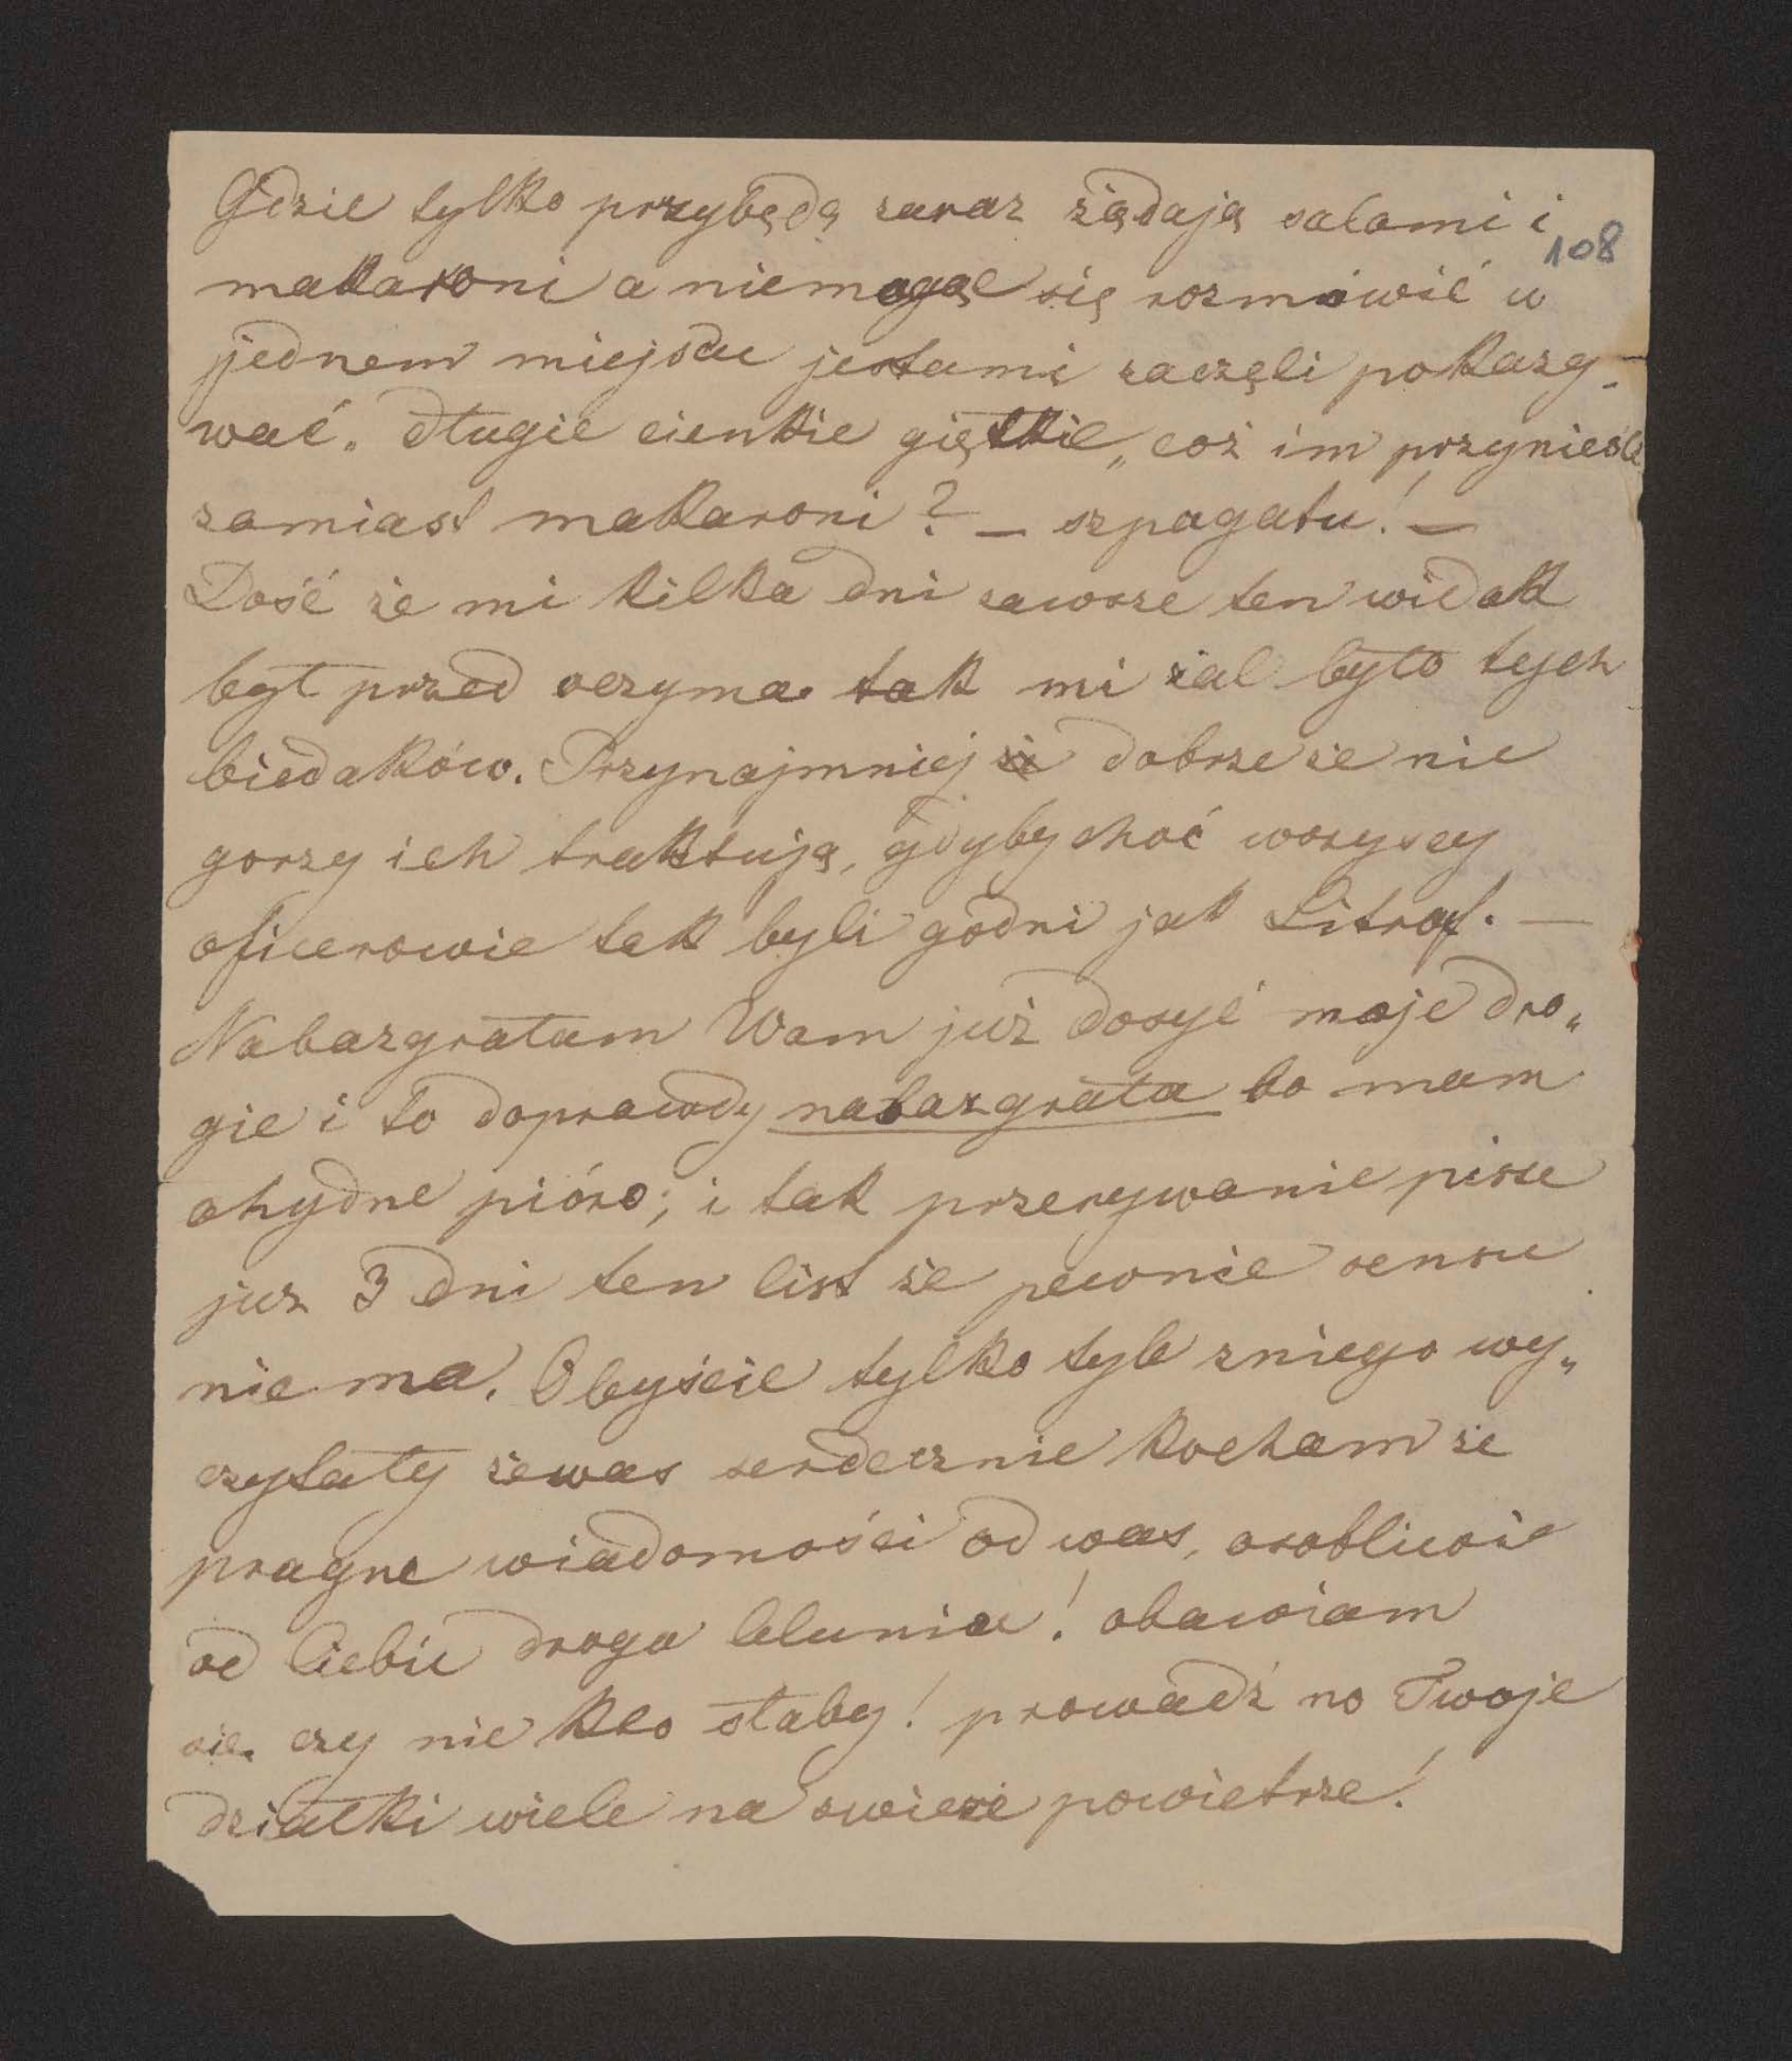 Gdzie tylko przybędą zaraz żądają salami i
108
makaroni a niemogąc się rozmówić w
jednem miejscu jestami zaczęli pokazy-
wać „ długie cienkie giętkie „ coż im przynieśli
zamiast makaroni? — szpagatu! —
Dość że mi kilka dni zawsze ten widok
był przed oczyma tak mi żal było tych
biedaków. Przynajmniej dobrze że nie
gorzy ich traktują, gdyby choć wszyscy
oficerowie tak byli godni jak Litrof. —
Nabazgrałam Wam już dosyć moje dro„
gie i to doprawdy nabazgrała bo mam
ohydne pióro; i tak przerywanie pisze
juz 3 dni ten list że pewnie sensu
nie ma. Obyście tylko tyle zniego wy„
czytały żewas serdecznie kocham że
pragne wiadomości od was, osobliwie
od Ciebie droga lelunia! obawiam
sie. czy nie kto słaby! prowadź no Twoje
dziatki wiele na swieże powietrze!